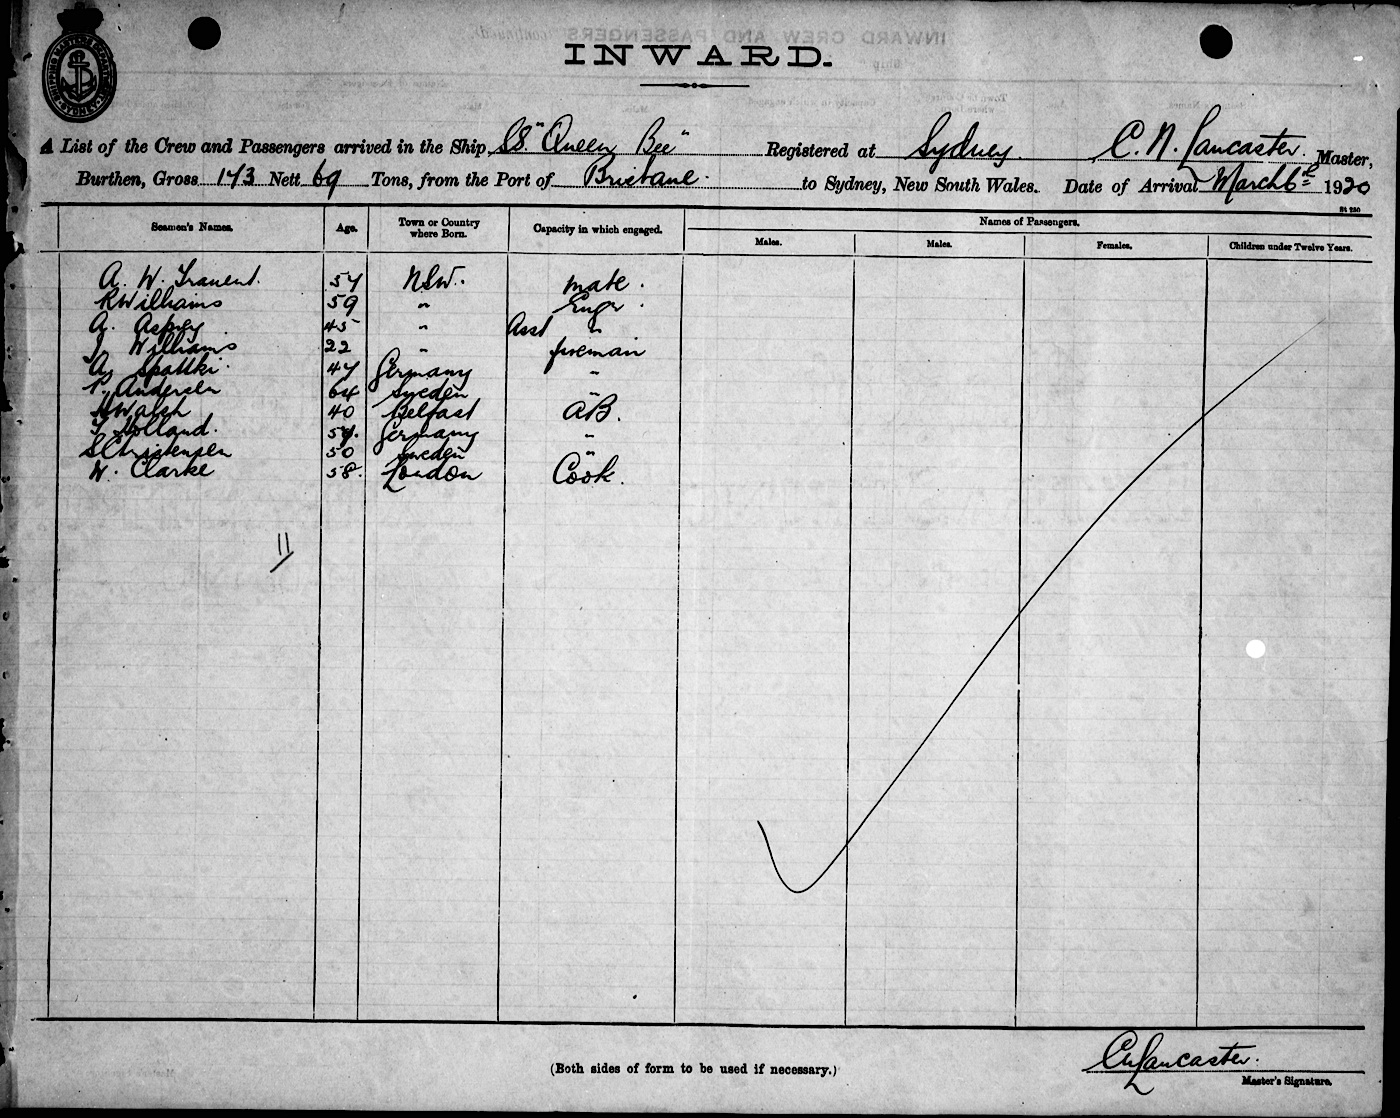 SHIPPING MASTER'S DEPARTMENT SYDNEY
INWARD.
A List of the Crew and Passengers arrived in the Ship SS "Queen Bee" Registered at Sydney. C. N. Lancaster. Master,
Burthen, Gross 143 Nett 69 Tons, from the Port of Brisbane. to Sydney, New South Wales. Date of Arrival March 6th 1920
Seamen's Names. Age. Town or Country where Born. Capacity in which engaged. Names of Passengers.
Males. Males. Females. Children under Twelve Years.
A. W. 54 NSW. mate.
R Williams 59 " Engr.
A. 45 " Asst "
J Williams 22 " fireman
A. Spattki. 47 Germany "
P. Andersen 64 Sweden "
H Walsh 40 Belfast AB.
T Holland. Germany "
S Christensen 50 Sweden "
W. Clarke 58. London Cook.
11
(Both sides of form to be used if necessary.)
CN Lancaster.
Master's Signature.